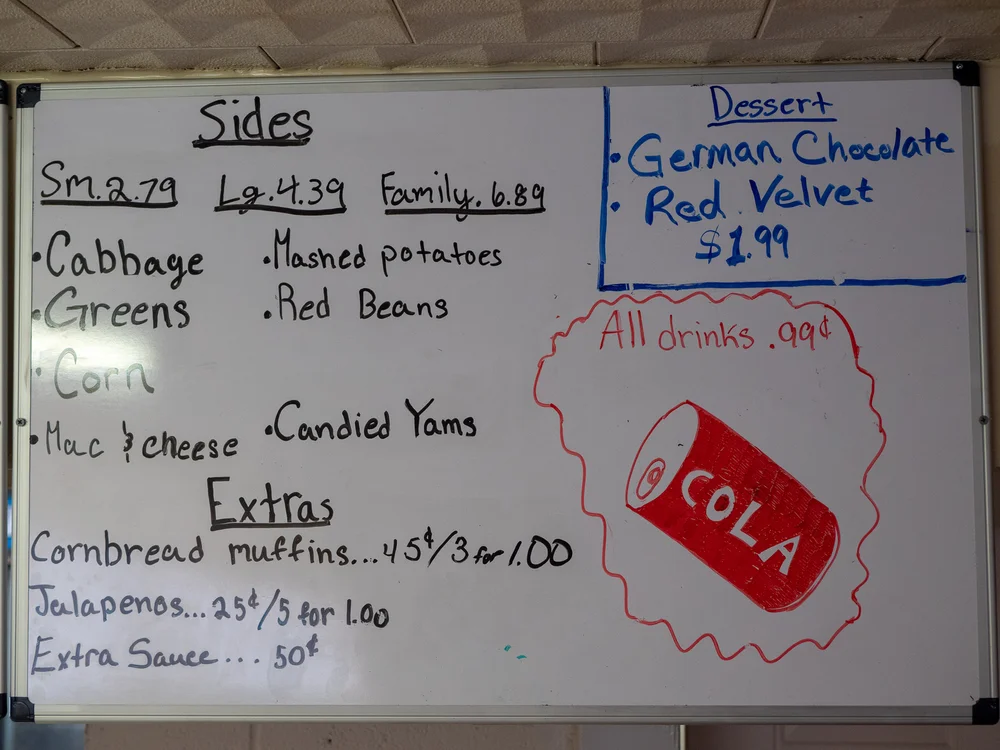 Sides
Sm. 2.79 Lg. 4.39 Family. 6.89
• Cabbage • Mashed potatoes
• Greens • Red Beans
• Corn
• Mac & cheese • Candied Yams
Extras
Cornbread muffins...45¢/3 for 1.00
Jalapenos...25¢/5 for 1.00
Extra Sauce... 50¢
Dessert
• German Chocolate
• Red Velvet
$1.99
All drinks .99¢
COLA